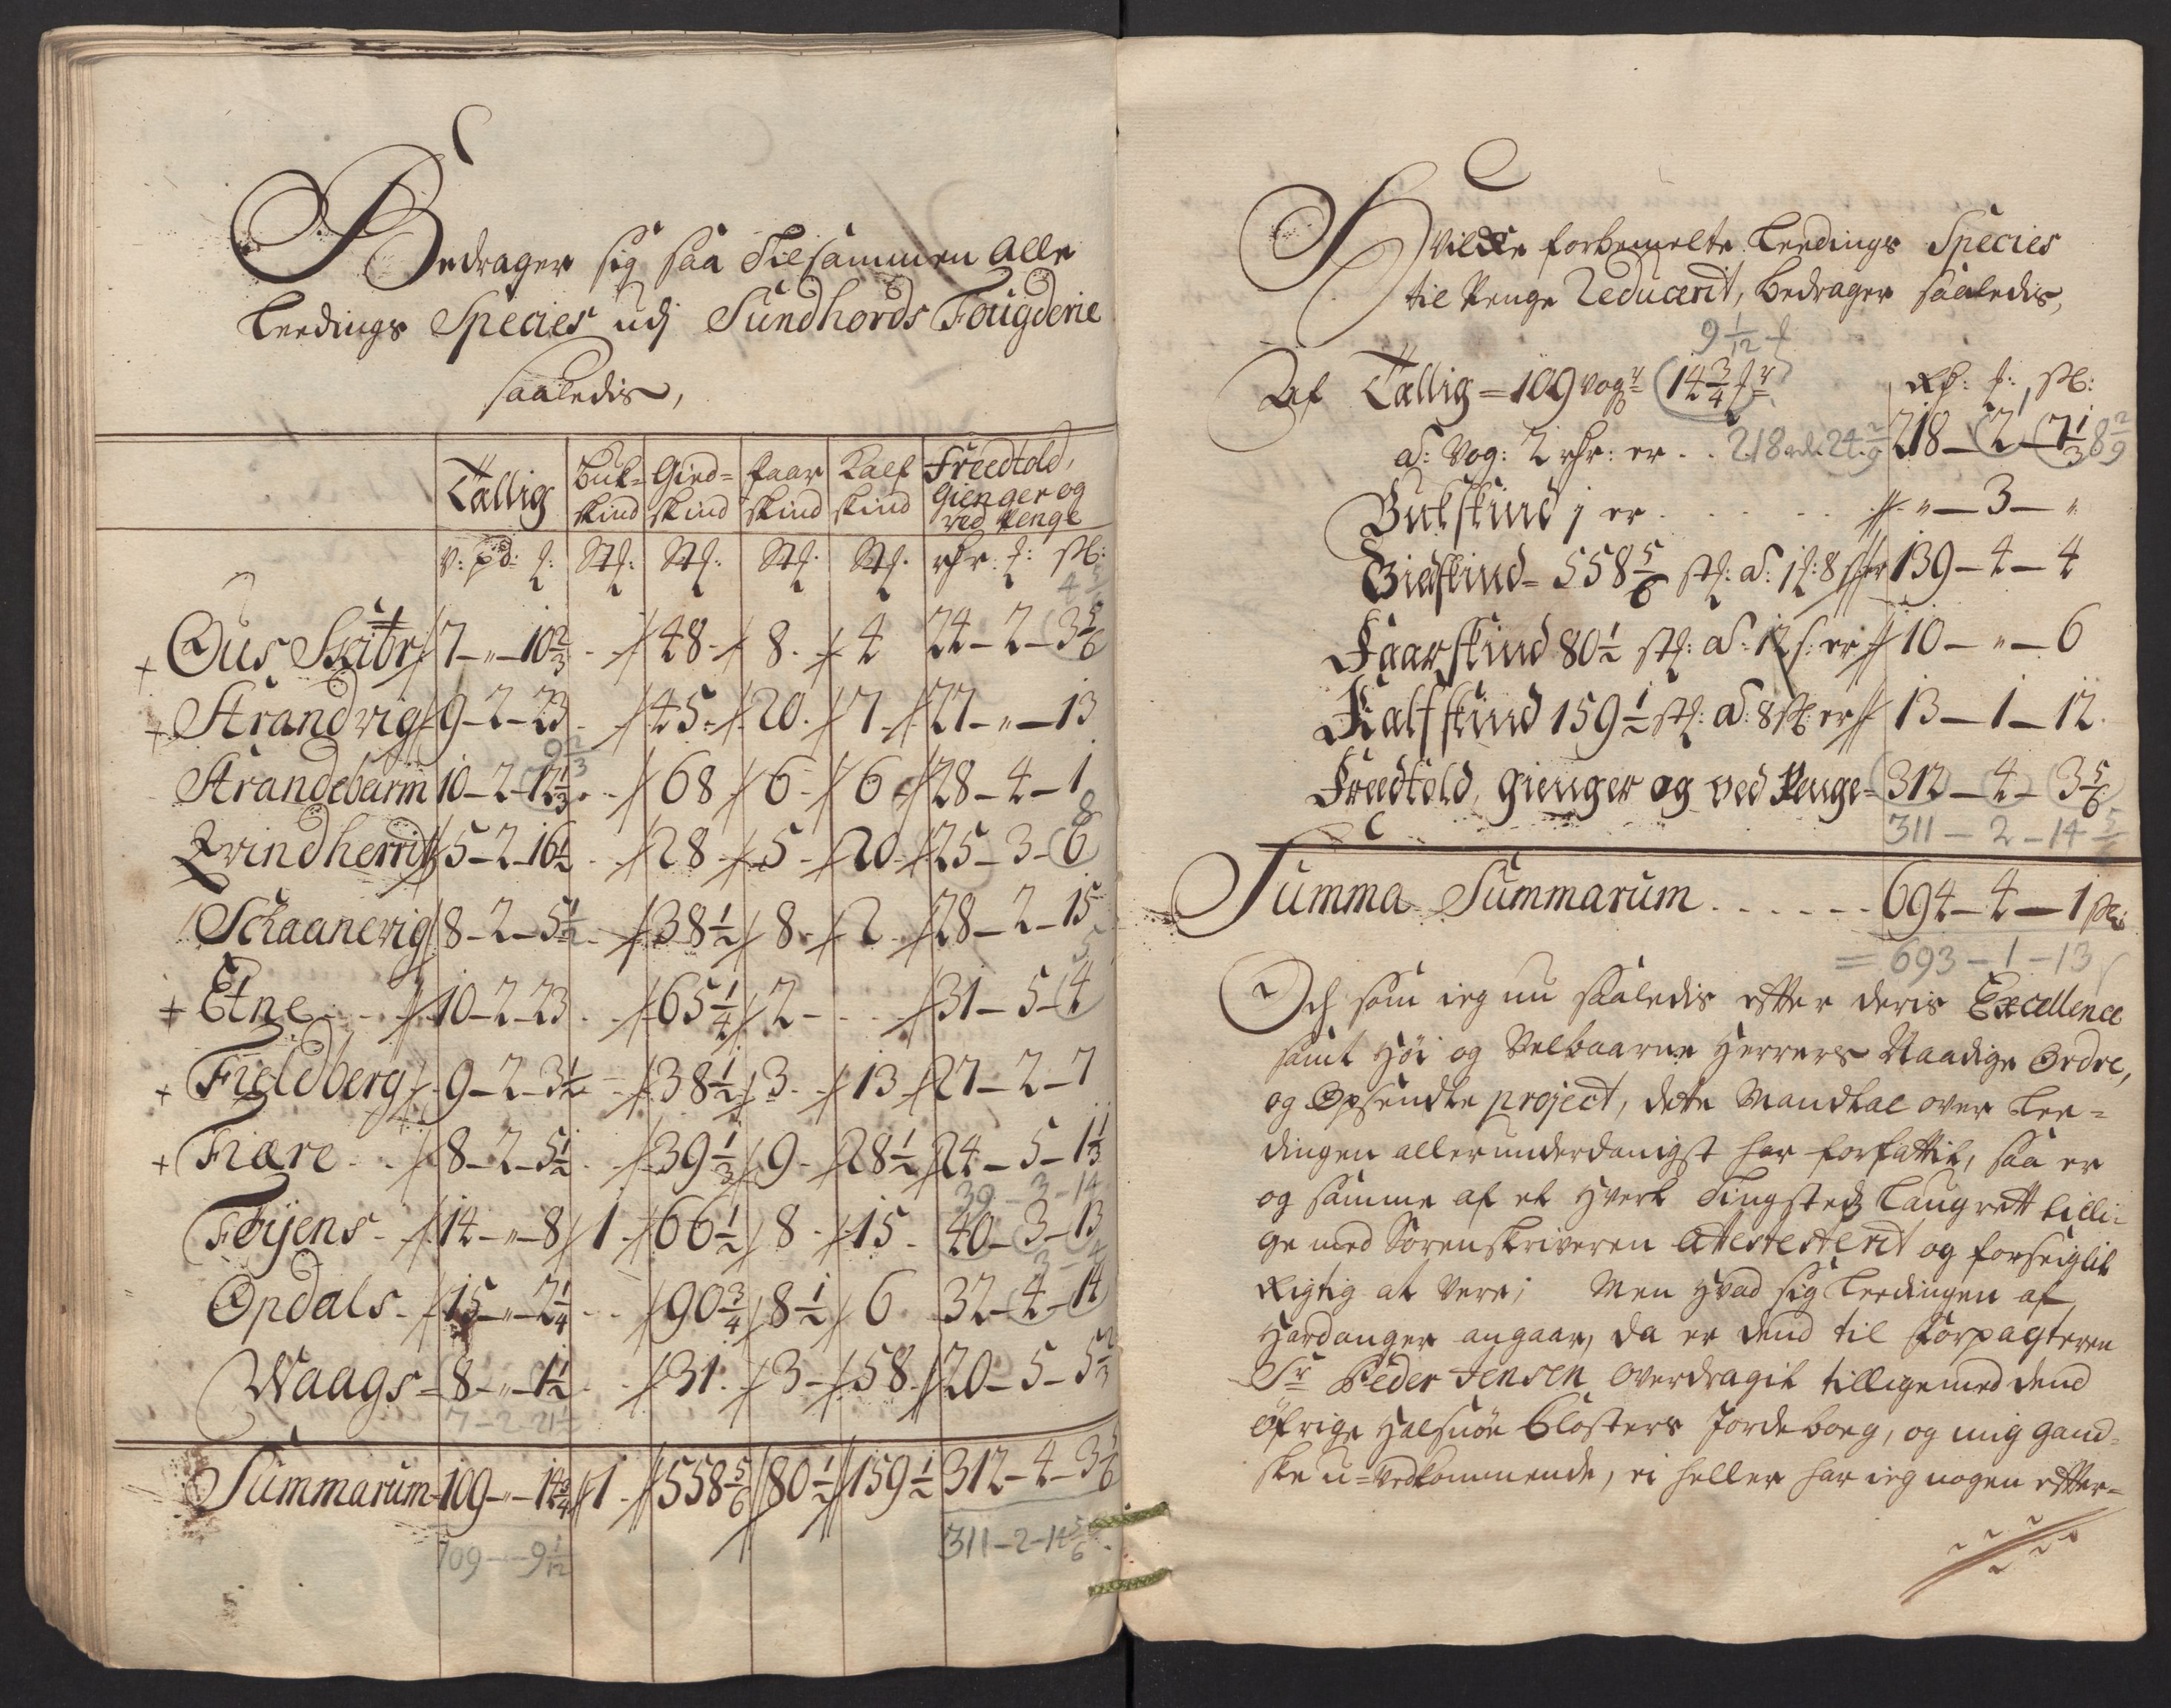 Bedrager sig saa Tilsammen alle
Leedings Species udj Sundhords Fougderie
saaledis,
Tallig | Buk-skind | Gied-skind | faar skind | Kalf skind | Freedtold, gienger og ved Penge
v: pd: | Stk: | Stk: | Stk: | Stk: | rhr: sk:
4 5/6
+ Ous Skibr 7 - " - 10 2/3 48 8 4 24 - 2 - 3 5/6
+ Strandvig 9 - 2 - 23 45 20 7 27 - " - 13
9 2/3
Strandebarm 10 - 2 - 12 1/3 68 6 6 28 - 4 - 1
8
Qvindherrit 5 - 2 - 16 1/2 28 5 20 25 - 3 - 6
Schaanevig 8 - 2 - 5 1/2 38 1/2 8 2 28 - 2 - 15
5
+ Etne 10 - 2 - 23 65 1/4 2 31 - 5 - 4
+ Fieldberg 9 - 2 - 3 1/2 38 1/2 3 13 27 - 2 - 7
+ Fiære 8 - 2 - 5 1/2 39 1/3 9 28 1/2 24 - 5 - 1 1/3
39 - 3 - 14
Føyens 14 - " - 8 1 66 1/2 8 15 40 - 3 - 13
3 - 4
Opdals 15 - " - 2 1/4 90 3/4 8 1/2 6 32 - 4 - 14
Waags 8 - " - 1 1/2 31 3 58 20 - 5 - 5 2/3
7 - 2 - 21 1/2
Summarum 109 - " - 14 3/4 1 558 5/6 80 1/2 159 1/2 312 - 4 - 3 5/6
109 - " - 9 1/12 311 - 2 - 14 5/6
Hvilke forbemelte Leedings Species
til Penge Reducerit, bedrager saaledis,
9 1/12
Af Tallig = 109 vogr 14 3/4 Rhr: sk:
a: Vog: 2 rhr: er . . 218 rd. 24 2/9 218 - 2 - 7 1/3 8 2/9
Bukskind 1 er . . . . " - 3 - "
Giedskind = 558 5/6 stk: a: 1 8 s er 139 - 4 - 4
Faarskind 80 1/2 stk: a: 12 s: er 10 - " - 6
Kalfskind 159 1/2 stk: a: 8 sk: er 13 - 1 - 12.
Freedtold, gienger og ved Penge = 312 - 4 - 3 5/6
311 - 2 - 14 5/6
Summa Summarum . . . . . . 694 - 4 - 1 sk:
= 693 - 1 - 13
Och som ieg nu saaledis efter deris Excellence
samt Høi og Velbaarne Herrers Naadige Ordre,
og Opsendte project, dette Mandtal over Lee-
dingen allerunderdanigst har forfattit, saa er
og samme af et hvert Tingsteds Laugrett tilli-
ge med Sorenskriveren attestesterit og forseiglit
Rigtig at vere; Men hvad sig Leedingen af
Hardanger angaar, da er dend til forpagteren
Sr Peder Jensen overdragit tillige med dend
øfrige Halsnøe Closters Jordeboeg, og mig gand-
ske u-vedkommende, ei heller har ieg nogen efter-